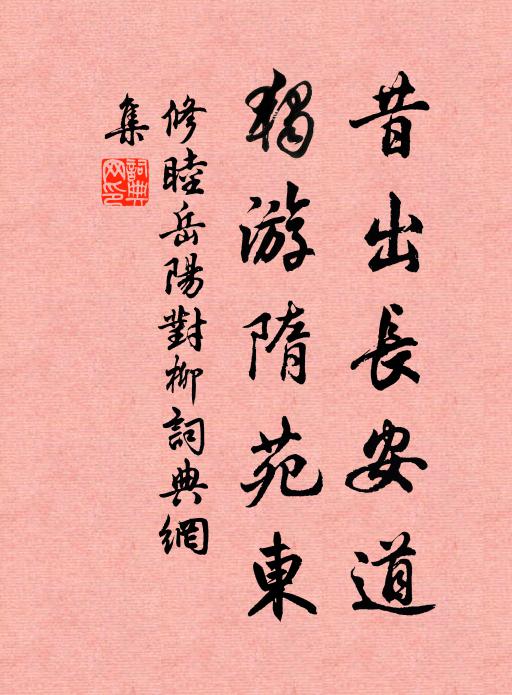 昔出長安道
獨游隋苑東
修睦岳陽對柳詞典網
集
詞典
网印